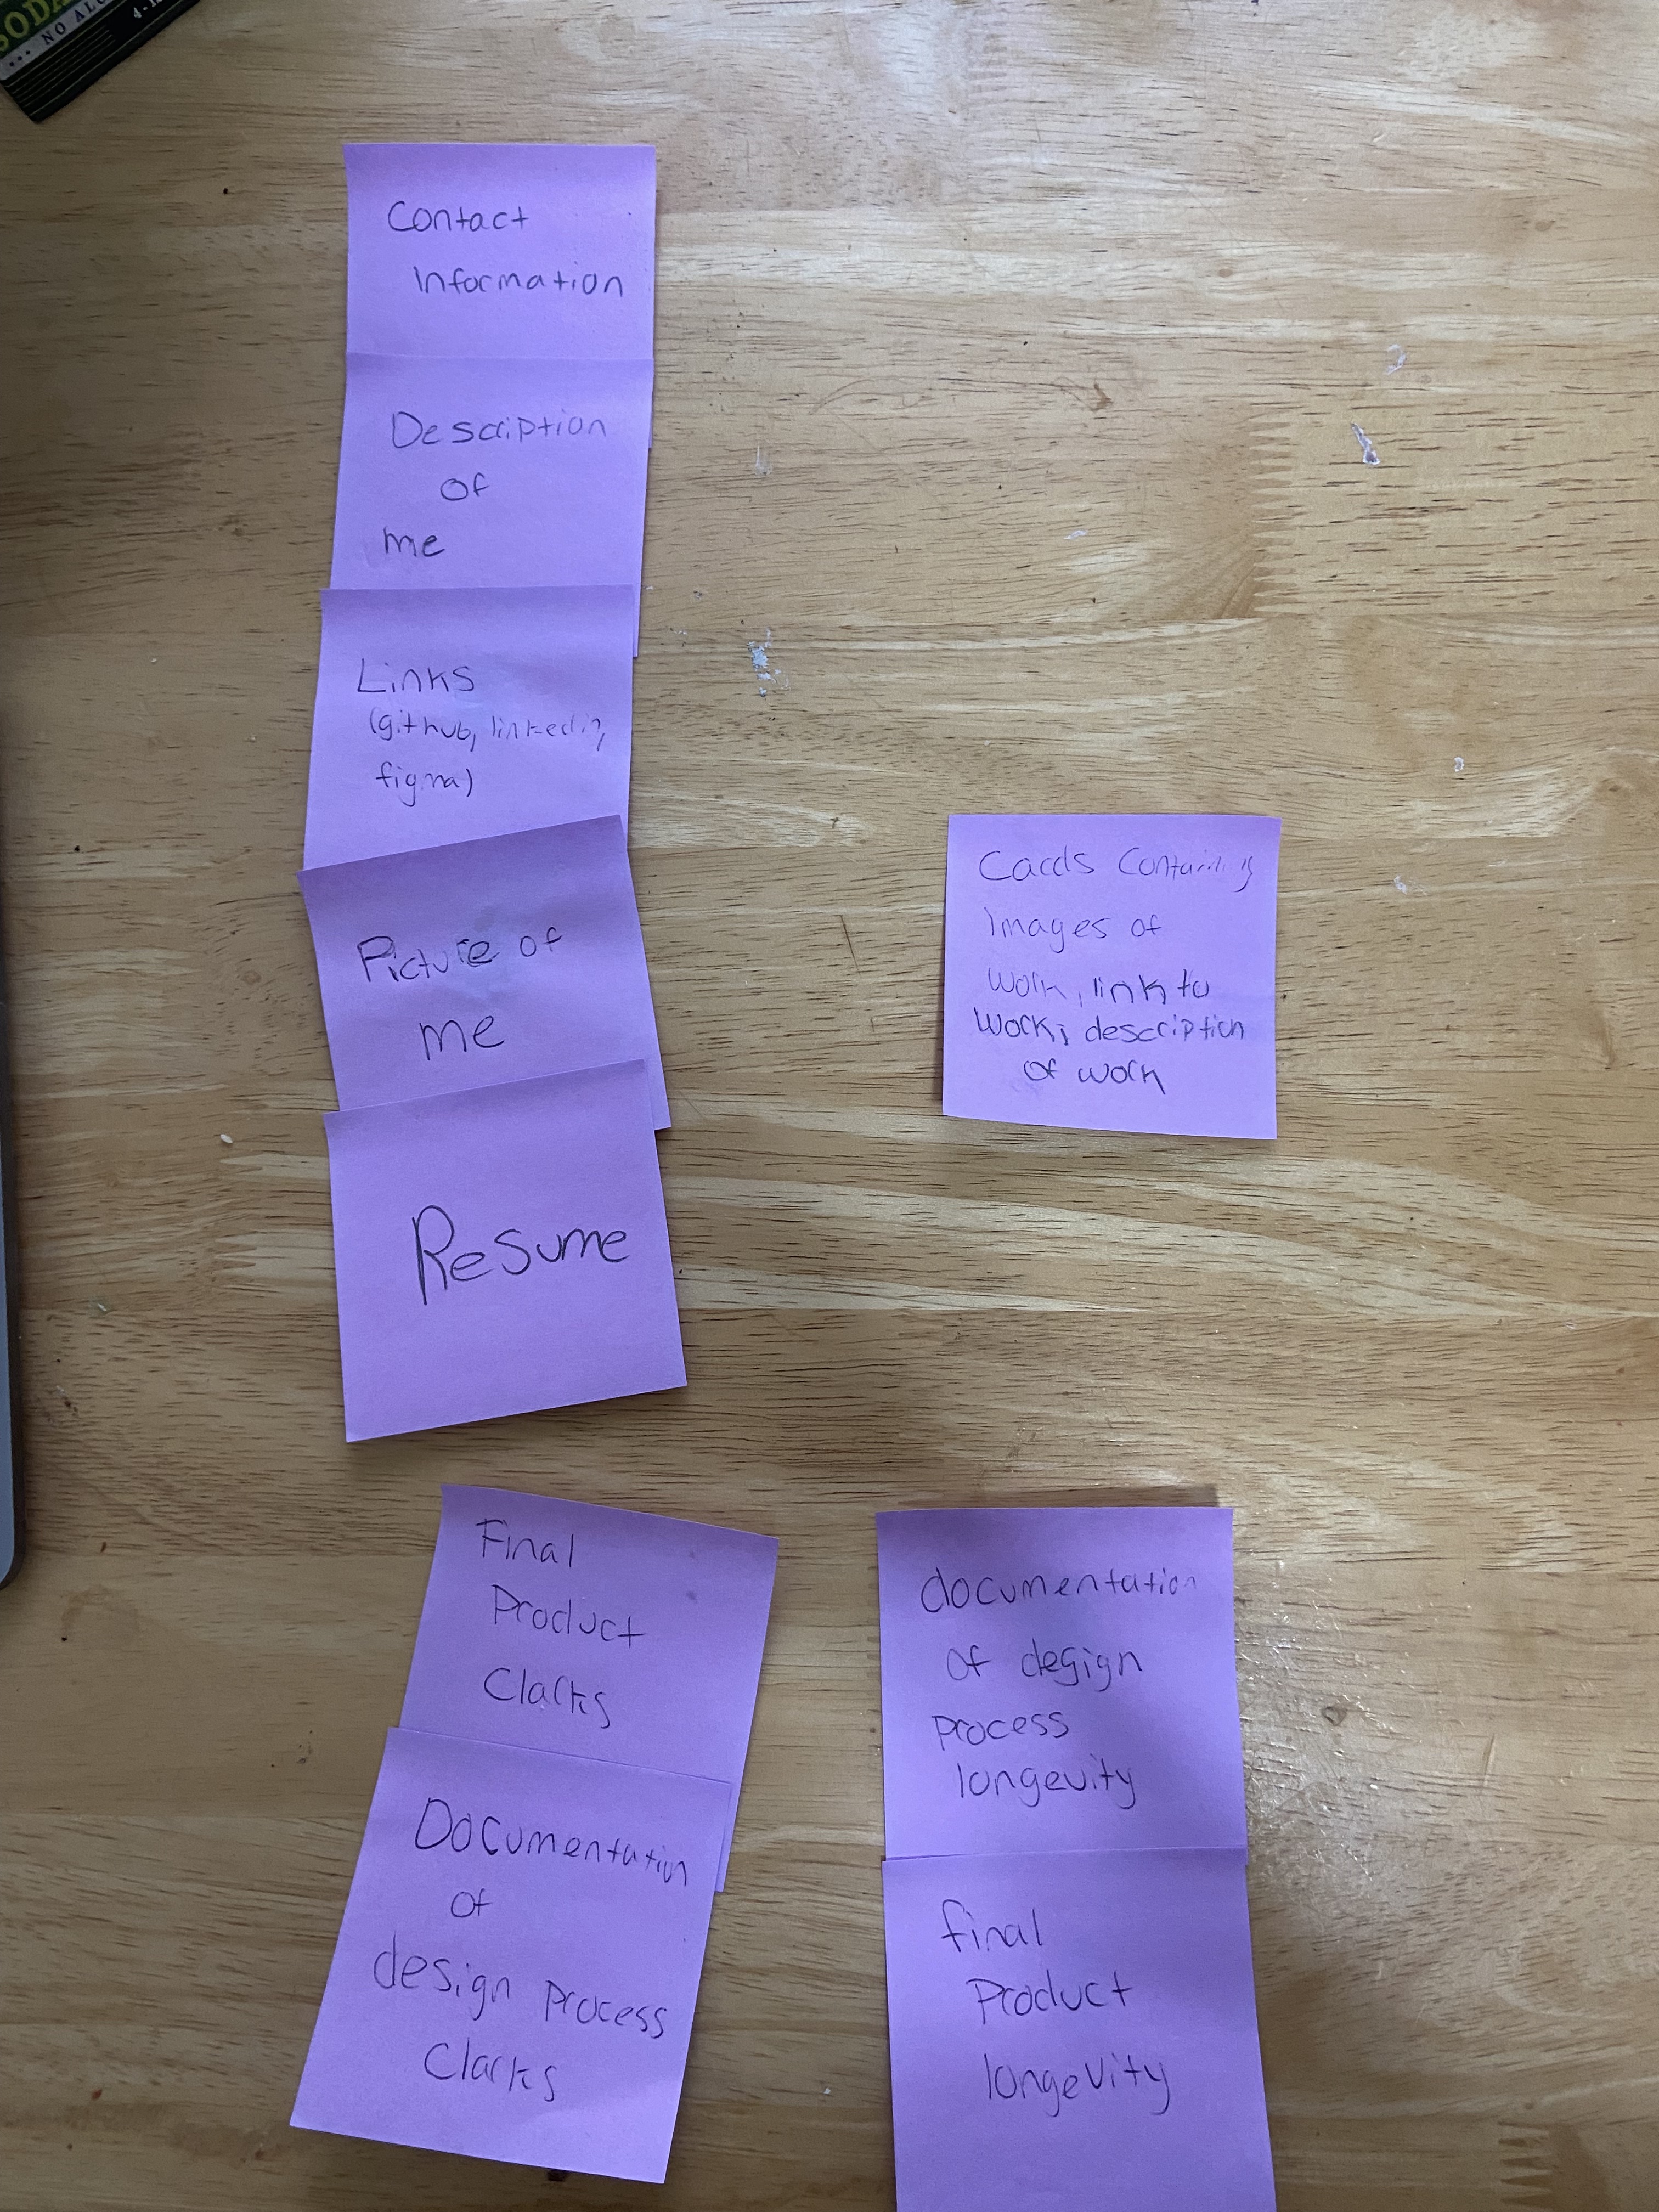 NO
Contact
Information
Description
of
me
Links
(github, linkedin,
figma)
Picture of
me
Resume
Cards Containing
Images of
Work, link to
Work, description
of work
Final
Product
Clarks
Documentation
of
design Process
Clarks
documentation
of design
process
longevity
final
Product
longevity